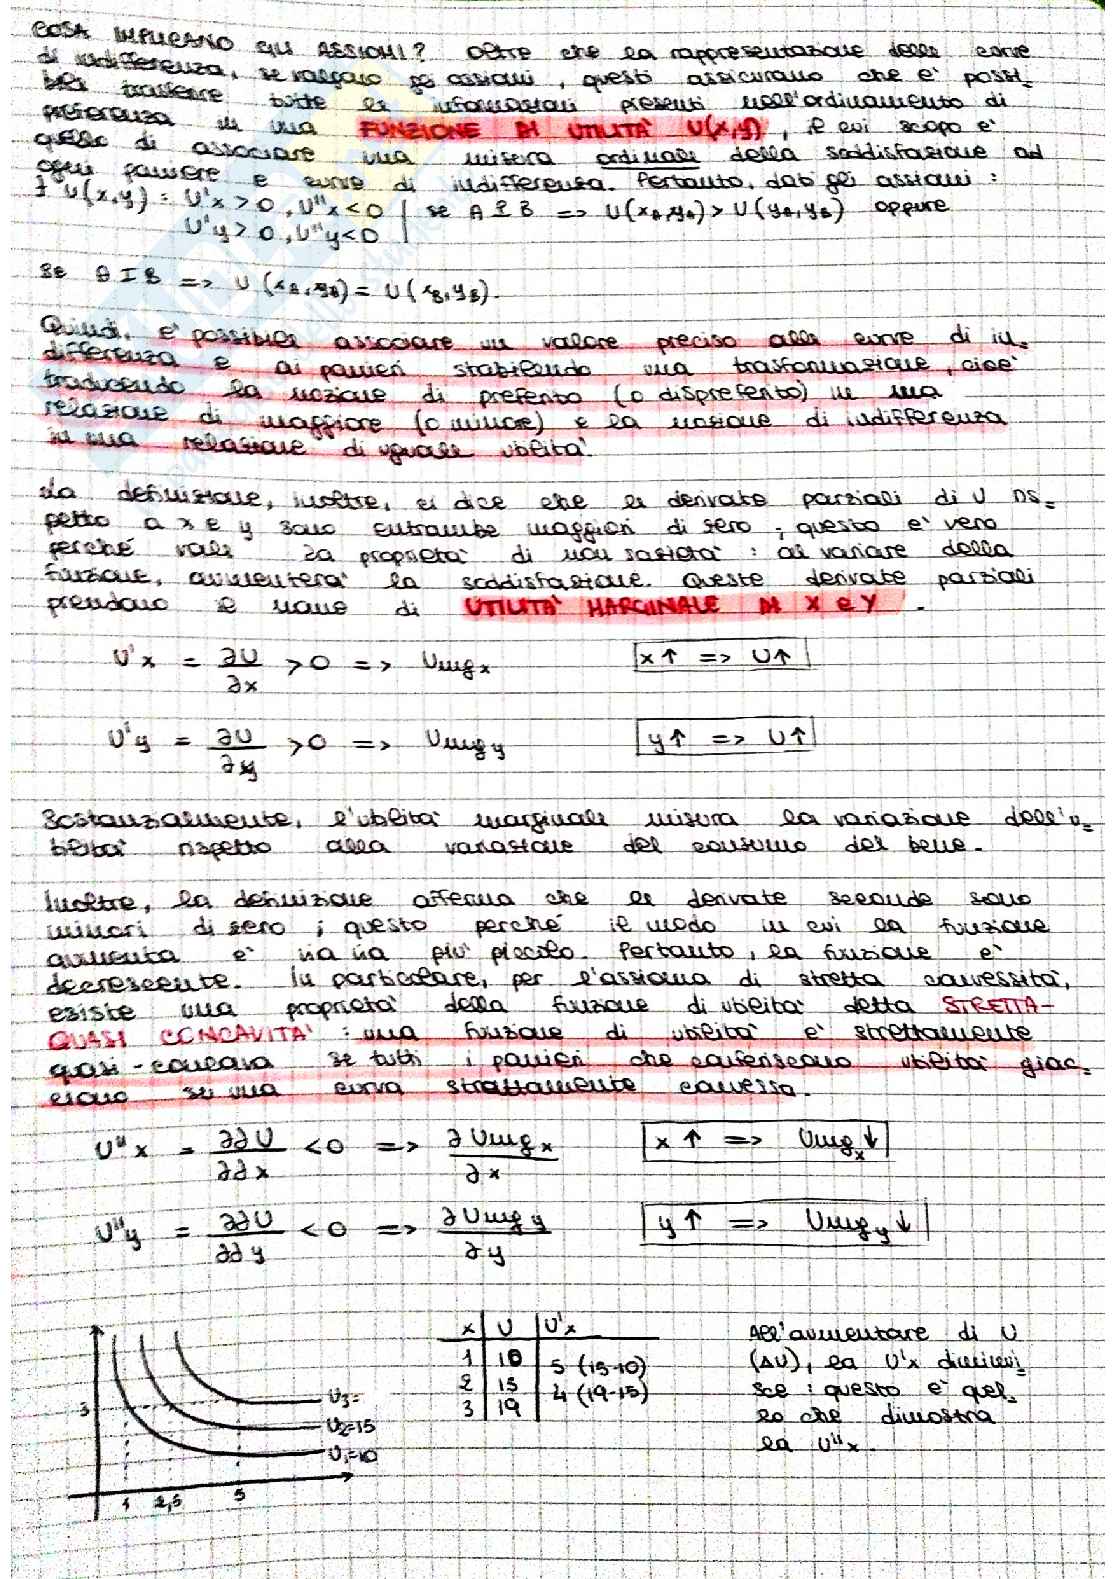 COSA IMPLICANO GLI ASSIOMI? Oltre che la rappresentazione delle curve
di indifferenza, se valgono gli assiomi, questi assicurano che è possi-
bile trasferire tutte le informazioni presenti nell'ordinamento di
preferenza in una FUNZIONE DI UTILITÀ U(x,y), il cui scopo è
quello di associare una misura ordinale della soddisfazione ad
ogni paniere e curve di indifferenza. Pertanto, dati gli assiomi:
∃ U(x,y): U'x > 0, U''x < 0 | se A P B => U(xA,yA) > U(yB,yB) oppure
U'y > 0, U''y < 0 |
Se A I B => U(xA,yA) = U(xB,yB).
Quindi, è possibile associare un valore preciso alle curve di in-
differenza e ai panieri stabilendo una trasformazione, cioè
traducendo la nozione di preferito (o dispreferito) in una
relazione di maggiore (o minore) e la nozione di indifferenza
in una relazione di uguale utilità.
La definizione, inoltre, ci dice che le derivate parziali di U ris-
petto a x e y sono entrambe maggiori di zero; questo è vero
perché vale la proprietà di non sazietà: al variare della
funzione, aumenterà la soddisfazione. Queste derivate parziali
prendono il nome di UTILITÀ MARGINALE DI X e Y.
U'x = ∂U/∂x > 0 => Umgx x↑ => U↑
U'y = ∂U/∂y > 0 => Umgy y↑ => U↑
Sostanzialmente, l'utilità marginale misura la variazione dell'u-
tilità rispetto alla variazione del consumo del bene.
Inoltre, la definizione afferma che le derivate seconde sono
minori di zero; questo perché il modo in cui la funzione
aumenta è via via più piccolo. Pertanto, la funzione è
decrescente. In particolare, per l'assioma di stretta convessità,
esiste una proprietà della funzione di utilità detta STRETTA-
QUASI CONCAVITÀ: una funzione di utilità è strettamente
quasi-concava se tutti i panieri che conferiscono utilità giac-
ciono su una curva strettamente convessa.
U''x = ∂∂U/∂∂x < 0 => ∂Umgx/∂x x↑ => Umgx↓
U''y = ∂∂U/∂∂y < 0 => ∂Umgy/∂y y↑ => Umgy↓
x U U'x
1 10
5 (15-10)
2 15
4 (19-15)
3 19
All'aumentare di U
(ΔU), la U'x diminui-
sce: questo è quel-
lo che dimostra
la U''x.
U3=
3
U2=15
U1=10
1 2,5 5